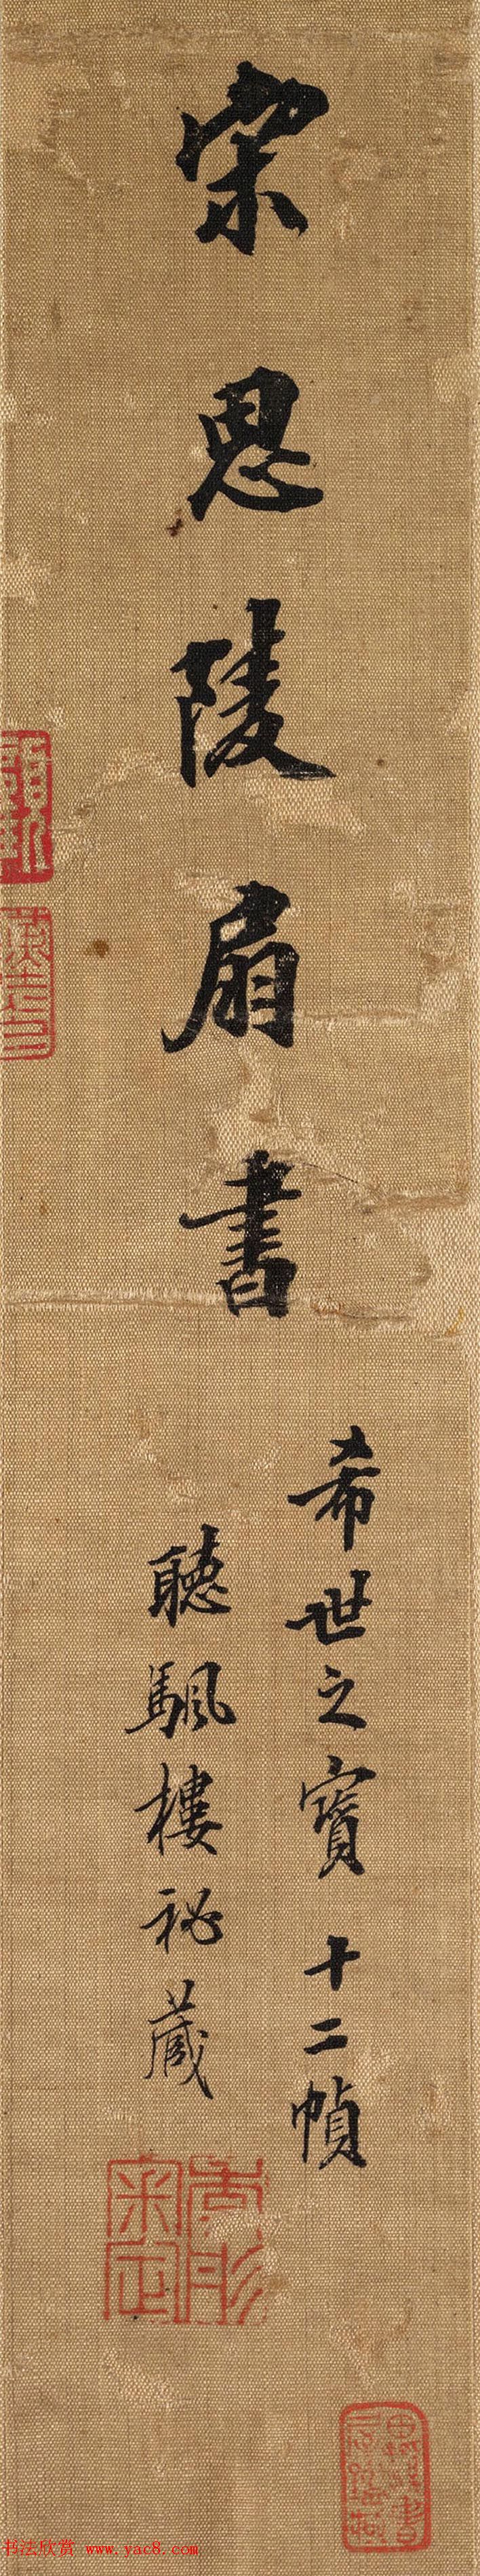 宋思陵扇書
希世之寶十二幀
聽颿樓祕藏
书法欣赏 www.yac8.com